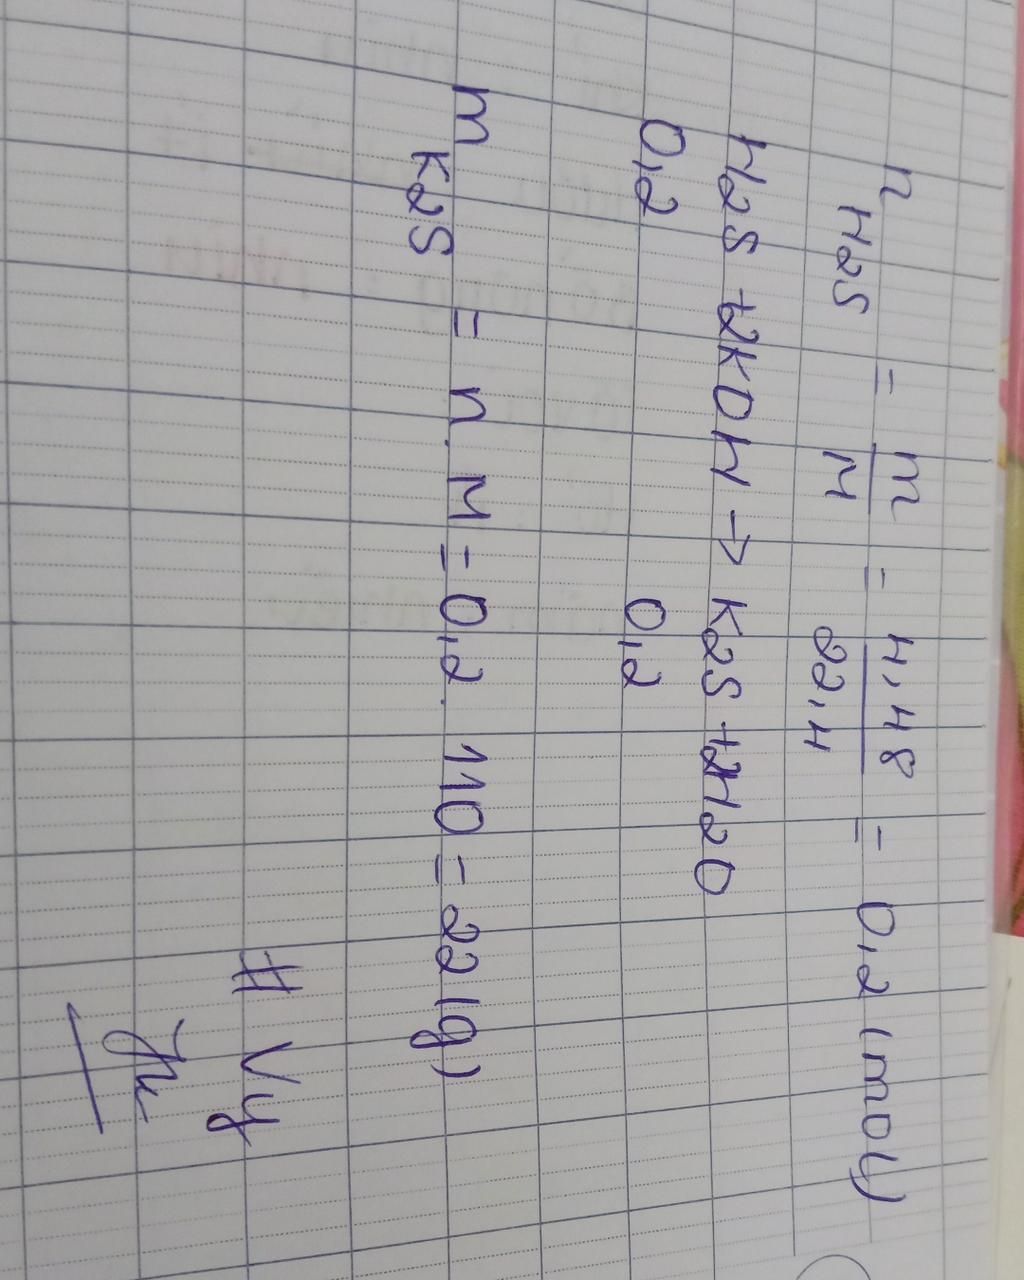 n H2S = m/M = 4,48/22,4 = 0,2 (mol)
H2S + 2KOH → K2S + 2H2O
0,2 0,2
m K2S = n. M = 0,2. 110 = 22 (g)
# Vy